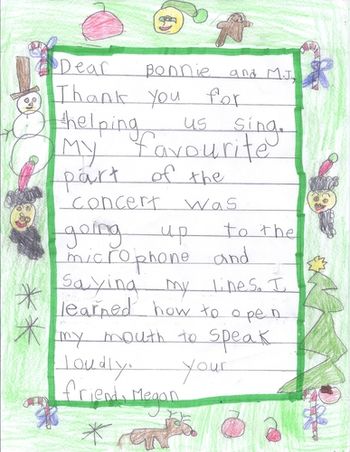 Dear Bonnie and M.J,
Thank you for
helping us sing.
My favourite
part of the
concert was
going up to the
microphone and
saying my lines. I
learned how to open
my mouth to speak
loudly. your
friend, Megan